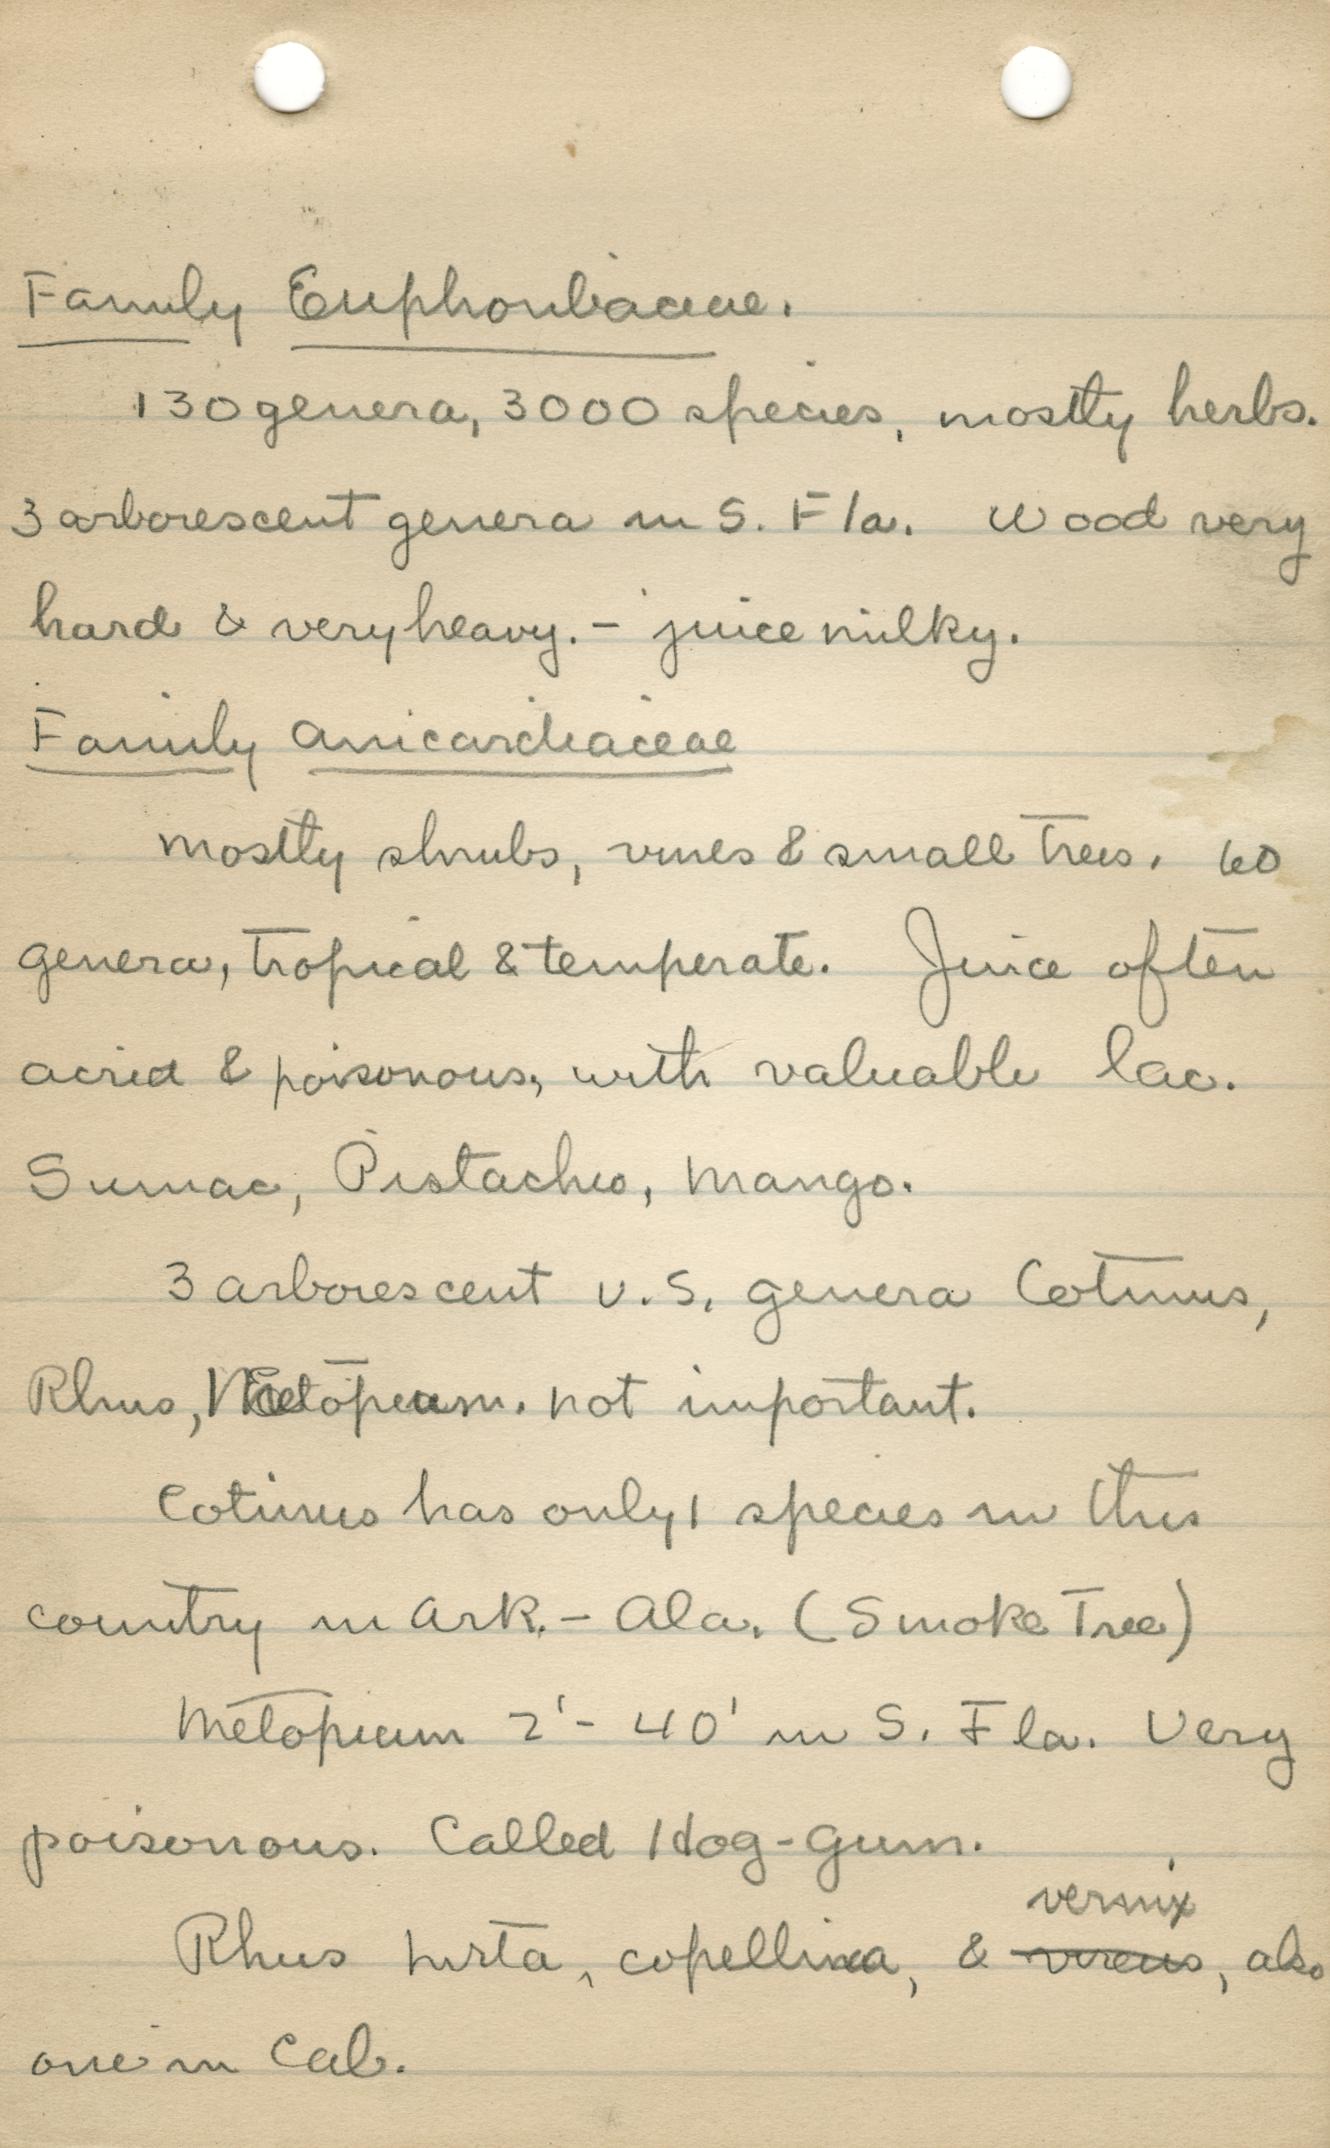 Family Euphorbiaceae.
130 genera, 3000 species, mostly herbs.
3 arborescent genera in S. Fla. Wood very
hard & very heavy. - juice milky.
Family Anicardiaceae
Mostly shrubs, vines & small trees. 60
genera, tropical & temperate. Juice often
acrid & poisonous, with valuable lac.
Sumac, Pistachio, Mango.
3 arborescent U.S. genera Cotinus,
Rhus, Metopium. Not important.
Cotinus has only 1 species in this
country in Ark. - Ala. (Smoke Tree)
Metopium 2' - 40' in S. Fla. Very
poisonous. Called Hog-Gum.
vernix
Rhus hirta, copellina, & , also
one in Cal.